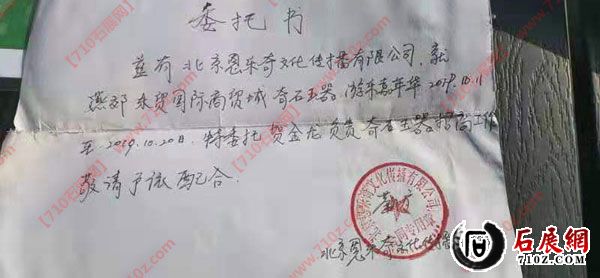 委托书
兹有北京恩来奇文化传播有限公司,就
燕郊东贸国际商贸城奇石玉器游乐嘉年华2019.10.11
至2019.10.20日.特委托贺金龙负责奇石玉器招商工作
敬请予以配合.
北京恩来奇文化传播
石展网
710Z.COM
【710石展网】
www.710z.com